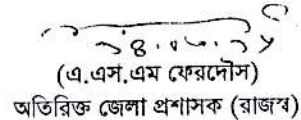 (এ.এস.এম ফেরদৌস)
অতিরিক্ত জেলা প্রশাসক (রাজস্ব)